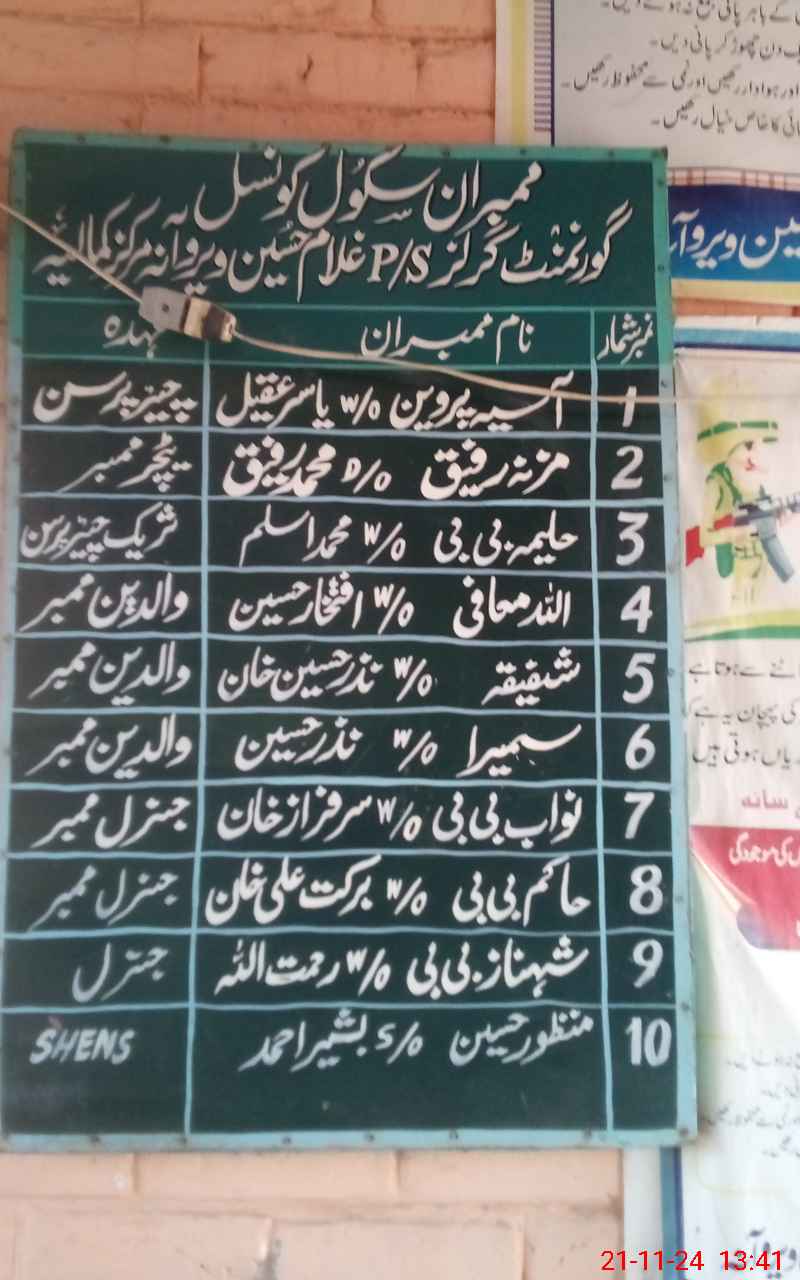 ممبران سکول کونسل
گورنمنٹ گرلز P/S غلام حسین ویروآنہ مرکز کمالیہ
نمبر شمار نام ممبران عہدہ
1 آسیہ پروین w/o یاسر عقیل چیئر پرسن
2 مزنہ رفیق D/o محمد رفیق ٹیچر ممبر
3 حلیمہ بی بی w/o محمد اسلم شریک چیئر پرسن
4 اللہ معافی w/o افتخار حسین والدین ممبر
5 شفیقہ w/o نذر حسین خان والدین ممبر
6 سمیرا w/o نذر حسین والدین ممبر
7 نواب بی بی w/o سرفراز خان جنرل ممبر
8 حاکم بی بی w/o برکت علی خان جنرل ممبر
9 شہناز بی بی w/o رحمت اللہ جنرل
10 منظور حسین S/o بشیر احمد SHENS
کے باہر پانی جمع نہ ہونے دیں۔
دن چھوڑ کر پانی دیں۔
اور ہوادار رکھیں اور نمی سے محفوظ رکھیں۔
کا خاص خیال رکھیں۔
سے ہوتا ہے
کی پہچان یہ ہے کہ
ہوتی ہیں
کی موجودگی
21-11-24 13:41